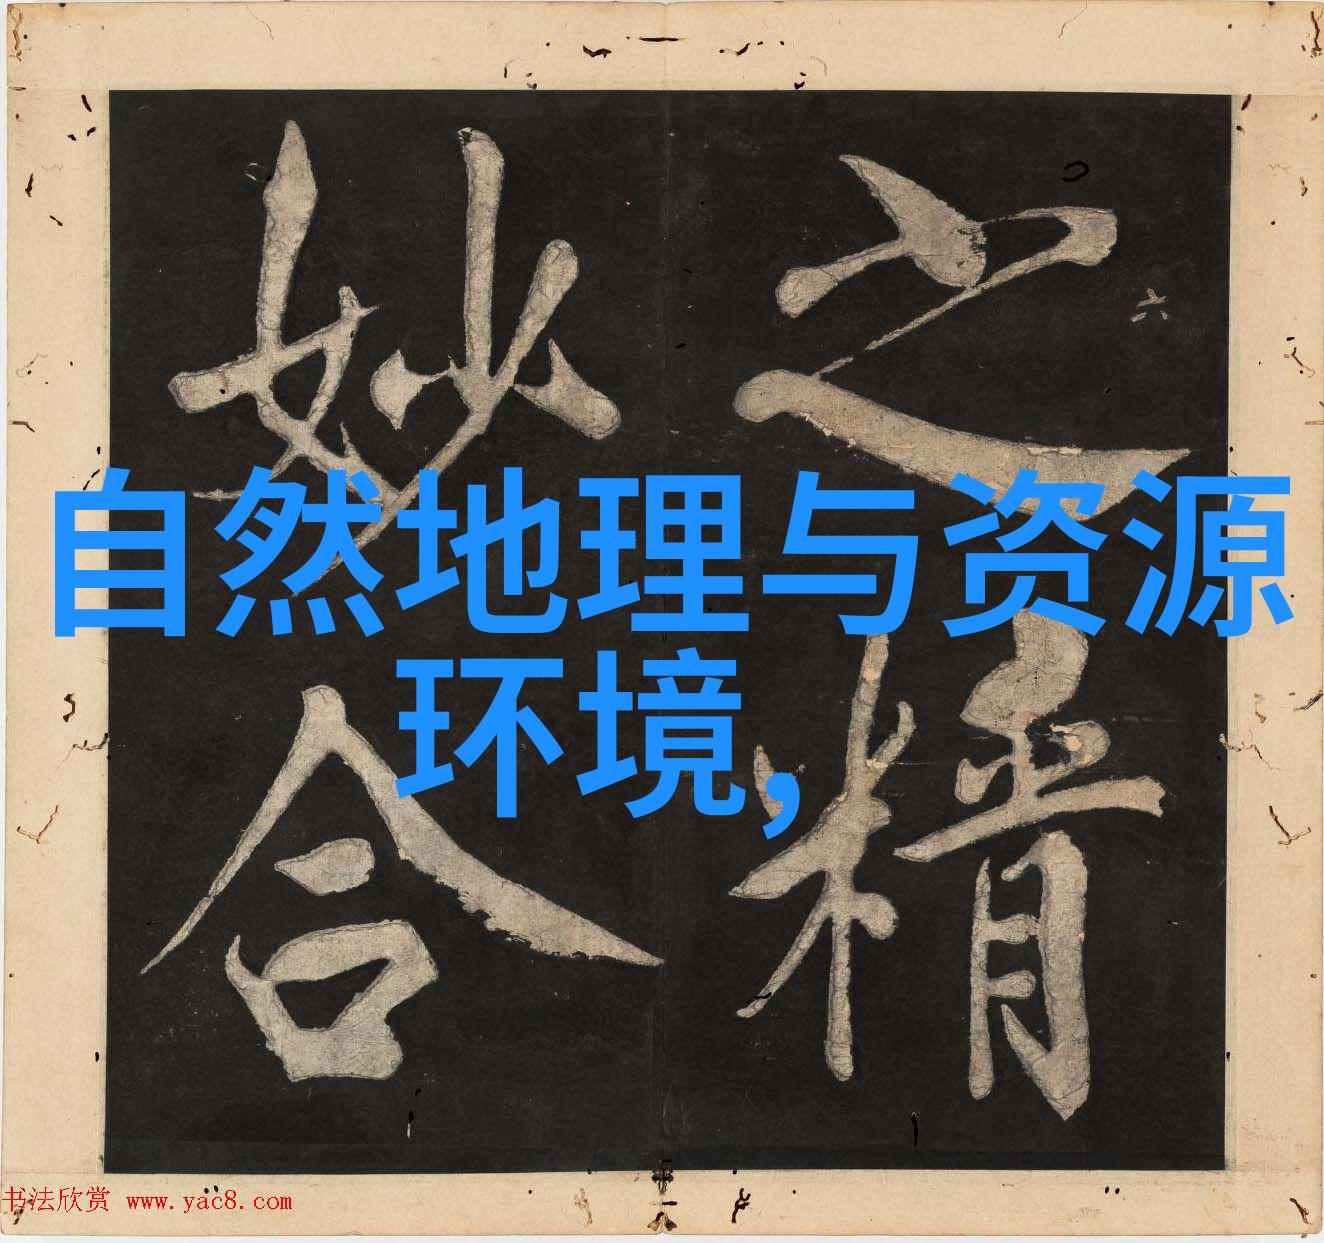 之
精
妙
合
六
自然地理与资源
环境,
书法欣赏 www.yac8.com